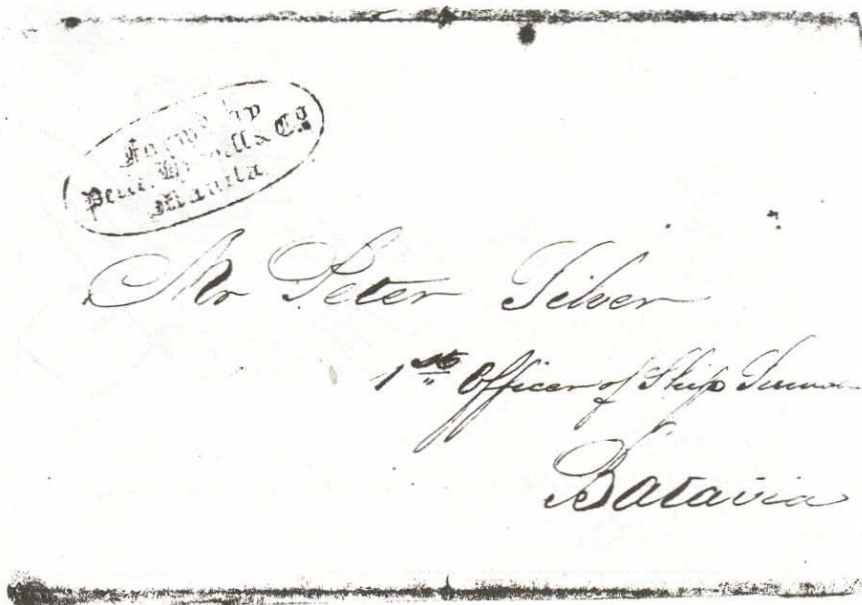 Forwd by
Peele, Hubbell & Co
Manila
Mr Peter Silver
1st Officer of Ship
Batavia